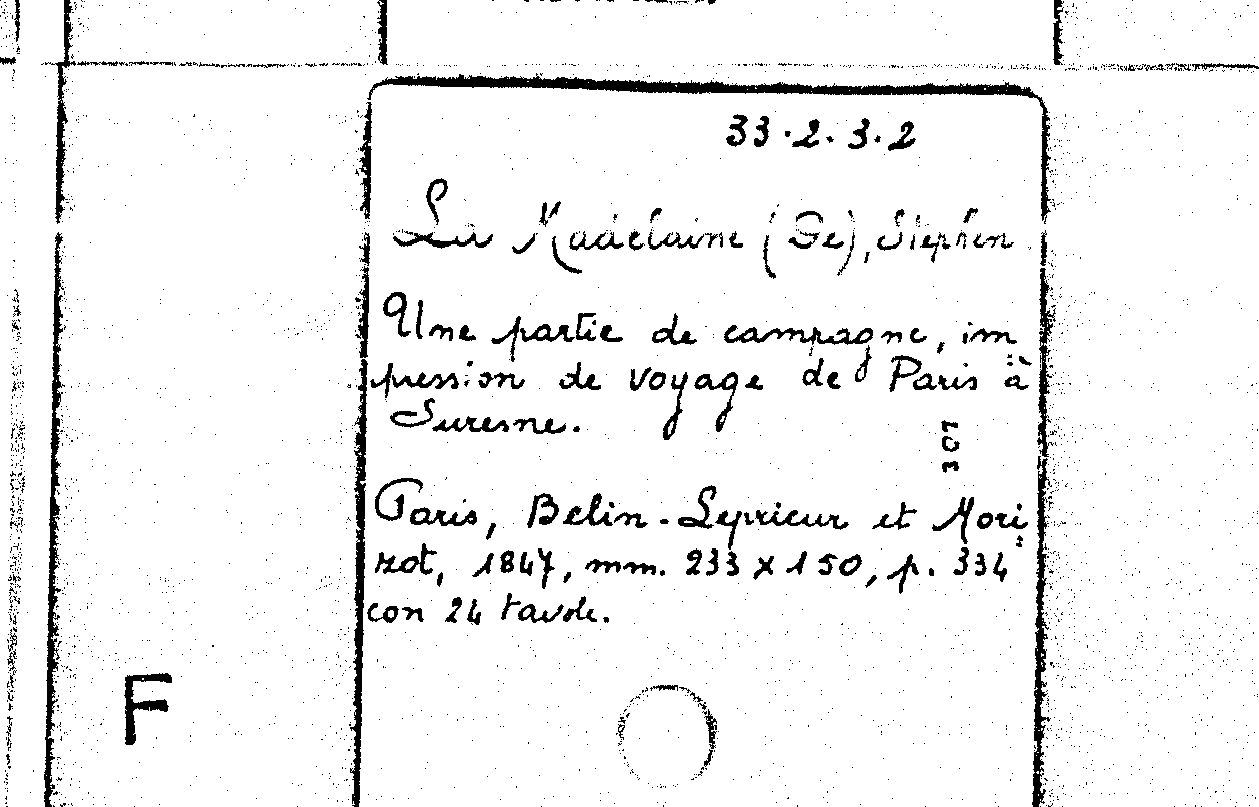 33.2.3.2
La Madelaine (De), Stephen
Une partie de campagne, im
pression de voyage de Paris à
Suresne.
307
Paris, Belin-Leprieur et Mori
zot, 1847, mm. 233 x 150, p. 334
con 24 tavole.
F